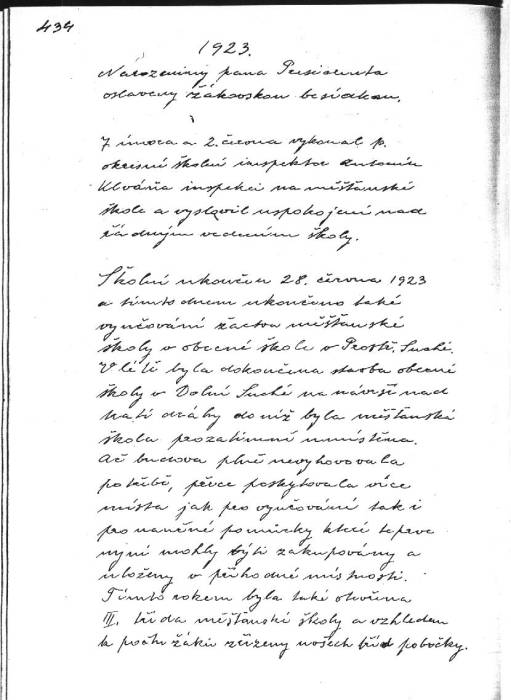 434
1923.
Narozeniny pana Presidenta
oslaveny žákovskou besídkou.
7 února a 2. června vykonal p.
okresní školní inspektor Antonín
Klváňa inspekci na měšťanské
škole a vyslovil uspokojení nad
řádným vedením školy.
Školní ukončen 28. června 1923
a tímto dnem ukončeno také
vyučování žactva měšťanské
školy v obecné škole v Prostř. Suché.
V létě byla dokončena stavba obecné
školy v Dolní Suché na návrší nad
tratí dráhy do níž byla měšťanská
škola prozatímně umístěna.
Ač budova plně nevyhovovala
potřebě, přece poskytovala více
místa jak pro vyučování tak i
pro naučné pomůcky které teprve
nyní mohly býti zakupovány a
uloženy v příhodné místnosti.
Tímto rokem byla také otevřena
III. třída měšťanské školy a vzhledem
k počtu žáků zřízeny u všech tříd pobočky.